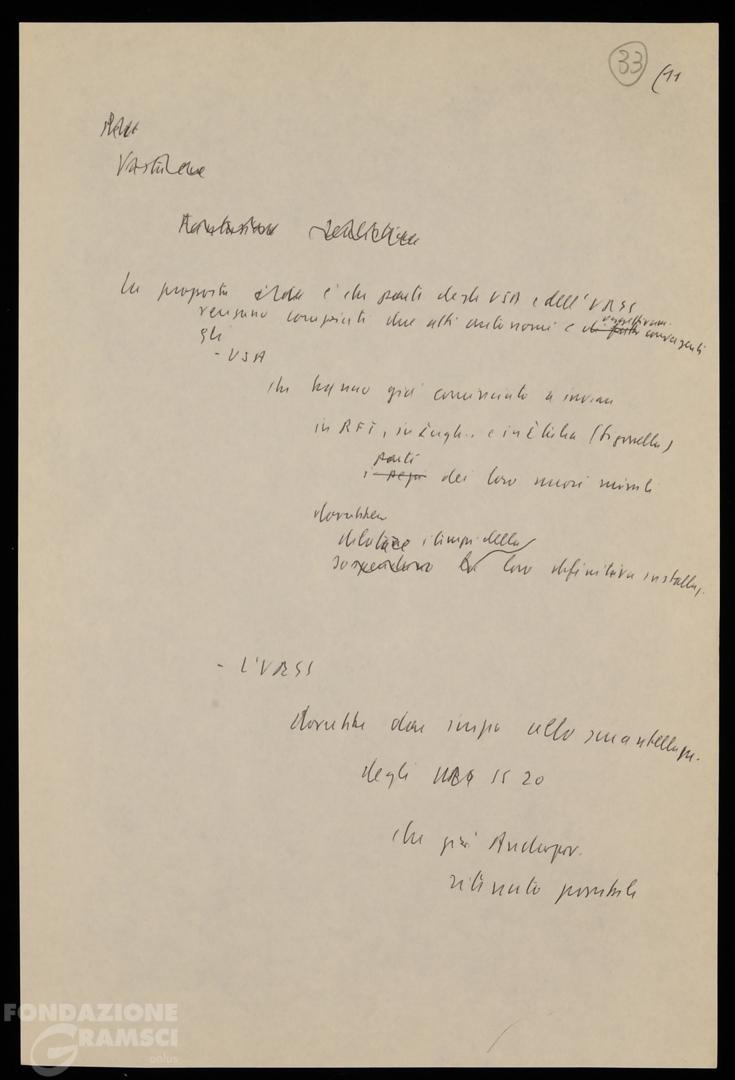 33 (11
La proposta è che parti degli USA e dell'URSS
vengano compiuti due atti autonomi e convergenti
gli
- USA
che hanno già cominciato a inviare
in RFT, in Ingh. e in Italia (Sigonella)
parti
i dei loro nuovi missili
dovrebbero
dilatare i tempi della
loro definitiva installaz.
- L'URSS
dovrebbe dare inizio allo smantellam.
degli SS 20
che già Andropov
ritenuto possibile
FONDAZIONE
GRAMSCI
onlus